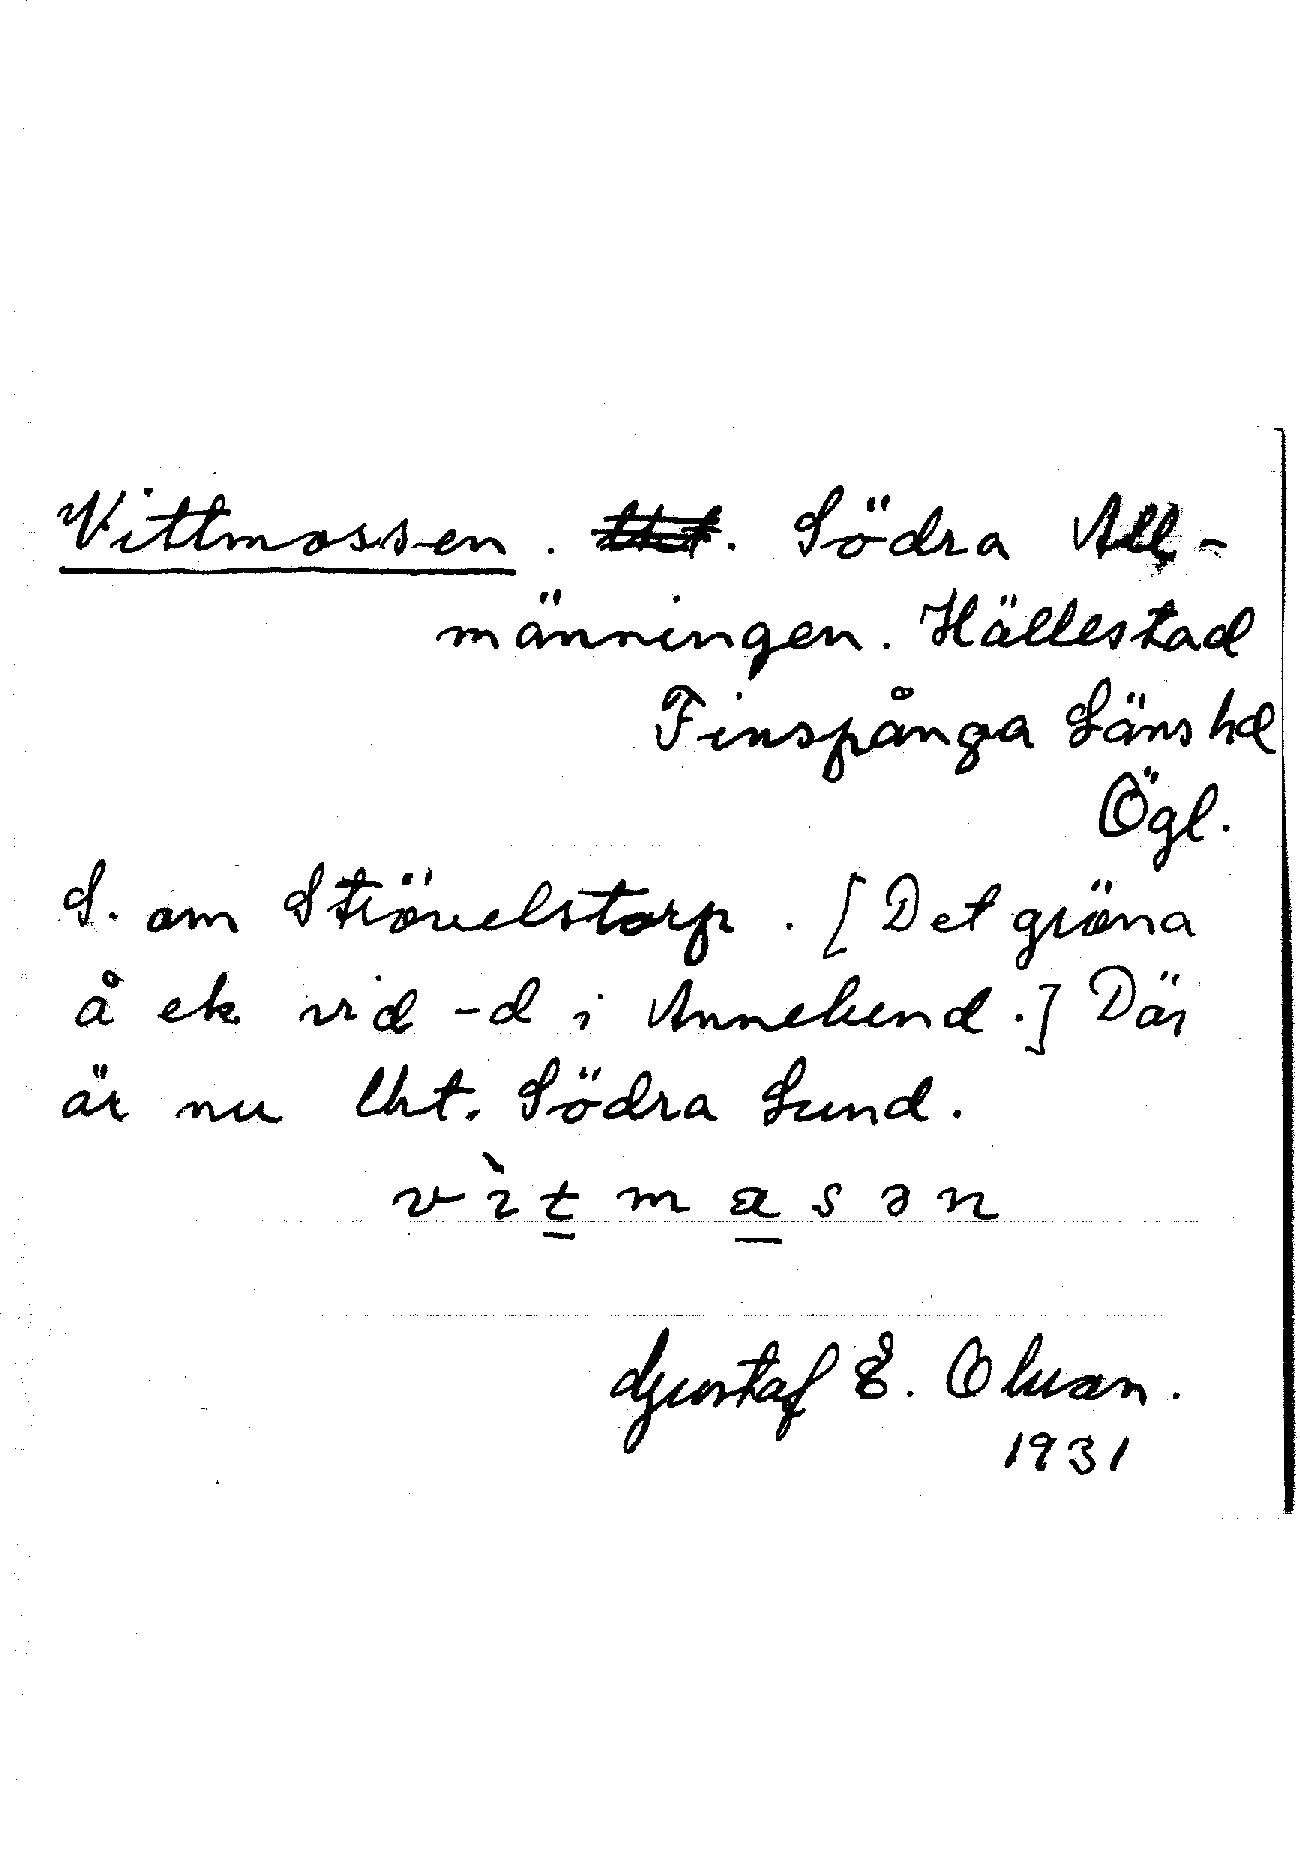 Vittmossen. Södra All-
männingen. Hällestad
Finspånga Länshd
Ögl.
S. om Stövelstorp. [Det gröna
å ek. vid -d i Annelund.] Där
är nu lht. Södra Lund.
vìtmasən
Gustaf E. Olsson.
1931